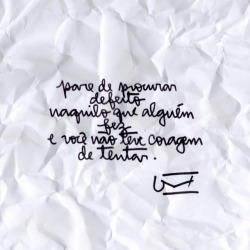 pare de procurar
defeito
naquilo que alguém
fez
e você não teve coragem
de tentar.